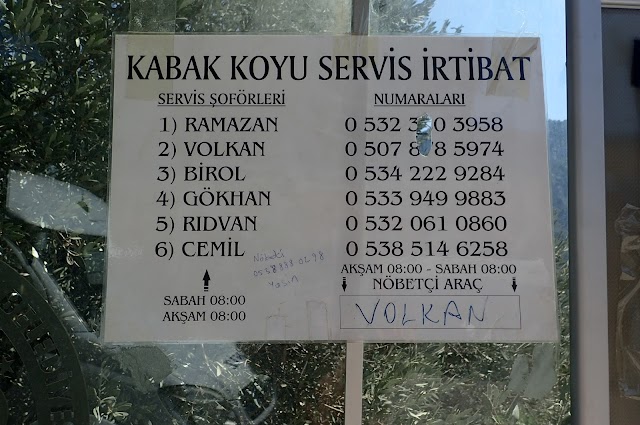 KABAK KOYU SERVİS İRTİBAT
SERVİS ŞOFÖRLERİ NUMARALARI
1) RAMAZAN 0 532 3 0 3958
2) VOLKAN 0 507 8 8 5974
3) BİROL 0 534 222 9284
4) GÖKHAN 0 533 949 9883
5) RIDVAN 0 532 061 0860
6) CEMİL 0 538 514 6258
Yasin
SABAH 08:00
AKŞAM 08:00
AKŞAM 08:00 - SABAH 08:00
NÖBETÇİ ARAÇ
VOLKAN